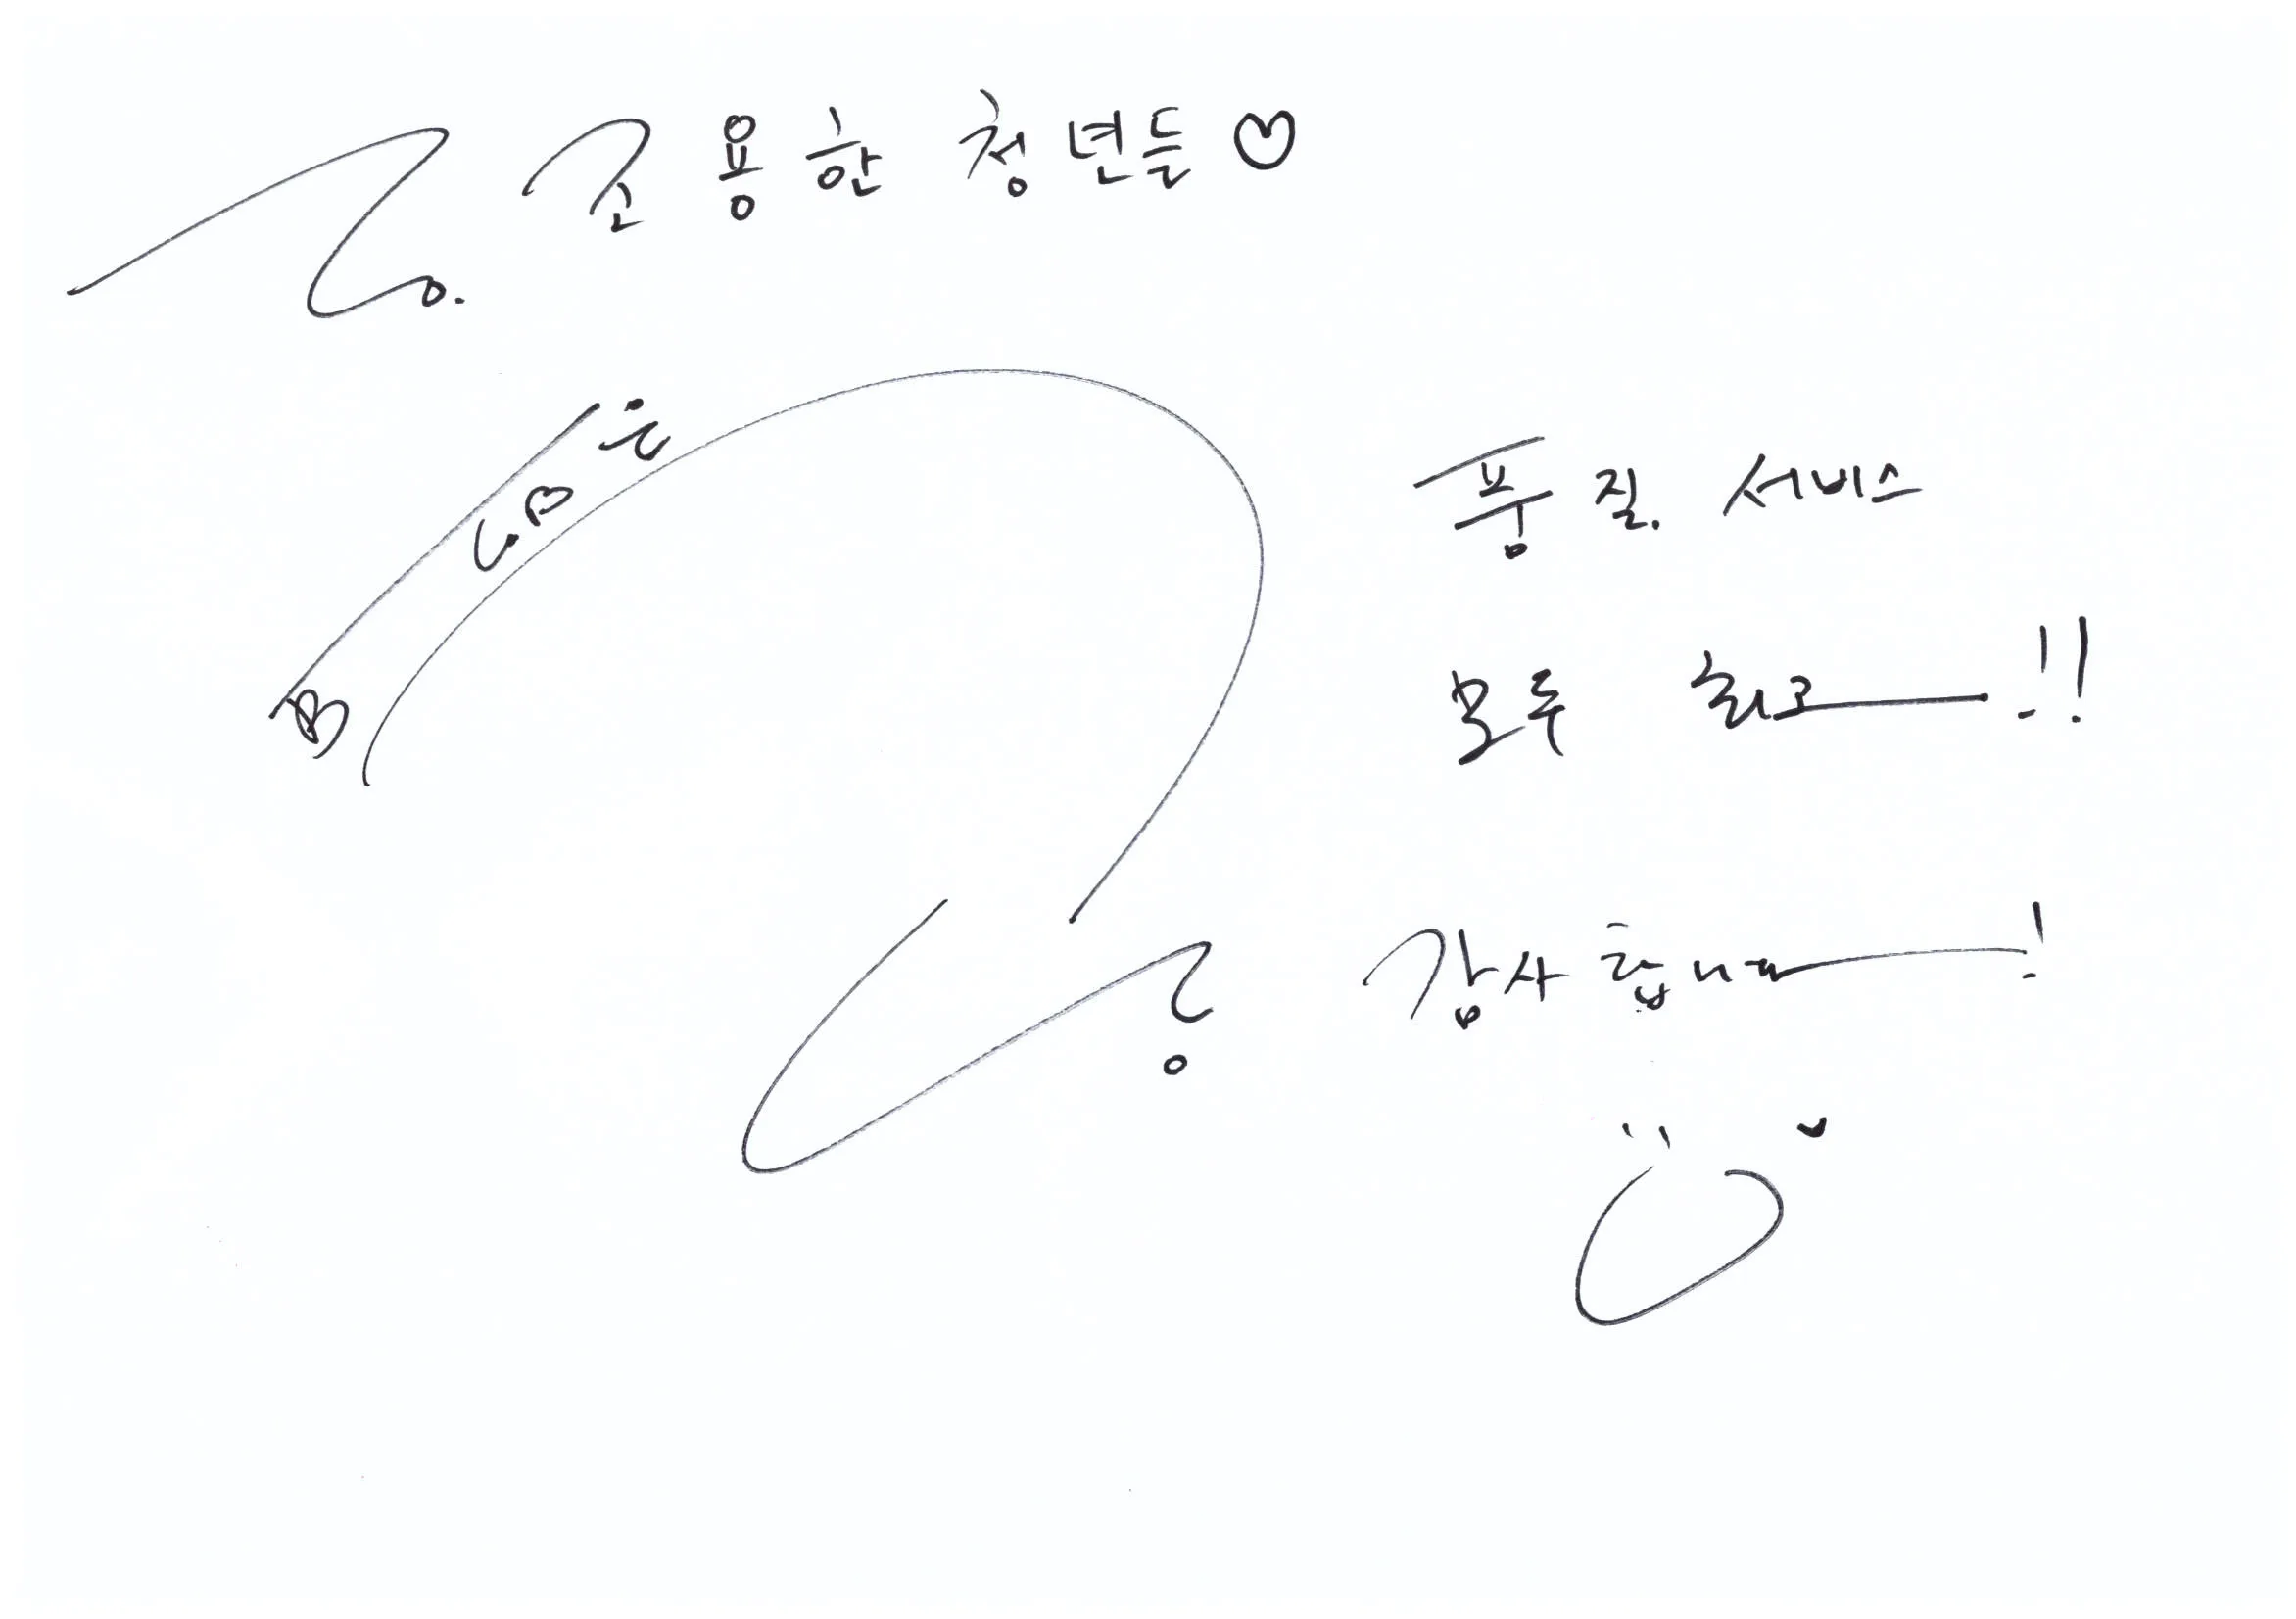 To. 조용한 청년들♡
품질. 서비스
모두 최고!!
감사합니다!